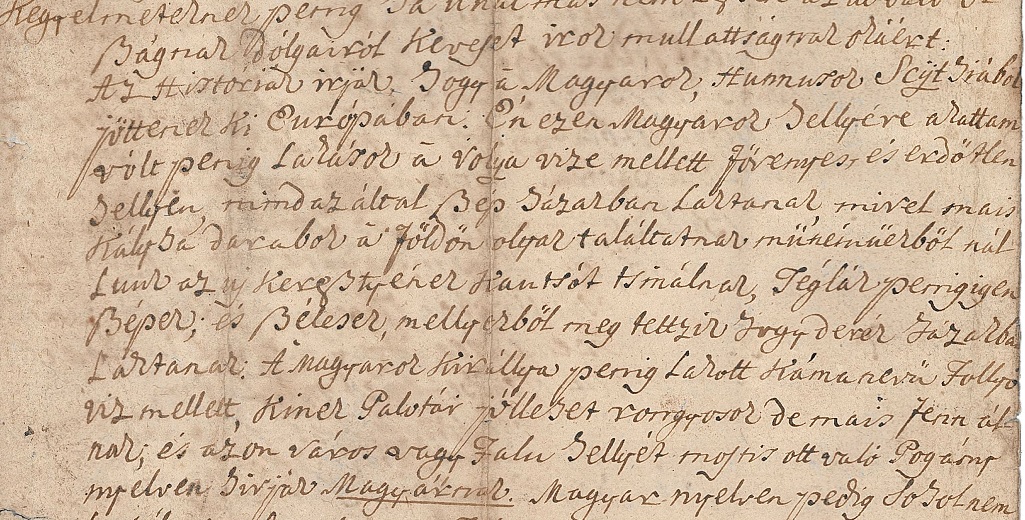 Kegyelmeteknek penig
ságnak dólgairól keveset irok mullattságnak okáért.
Az Historiák irják, hogy á Magyarok, Hunnusok Scÿthiábol
jöttenek ki Európában. Én ezen Magyarok hellyére akattam
vólt penig Lakások á Volga vize mellett fövenyes, és erdőtlen
hellyen, mindazáltal szép házakban Laktanak mivel mais
Kályha darabok á földön olyak találtatnak mÿnéműekből nál-
Lunk az új keresztyének Kantsót tsinálnak, Téglák penig igen
szépek; és szélesek, mellyekből meg tettzik hogy derék házakba
Laktanak. A Magyarok Királlya penig Lakott Káma nevü Follyo
viz mellett, kinek Palotái jóllehet rongyosok de mais fenn ál-
nak; és azon város vagy Falu hellyét mostis ott való Pogány
nyelven hivják Magyarnak. Magyar nyelven pedig sohol nem